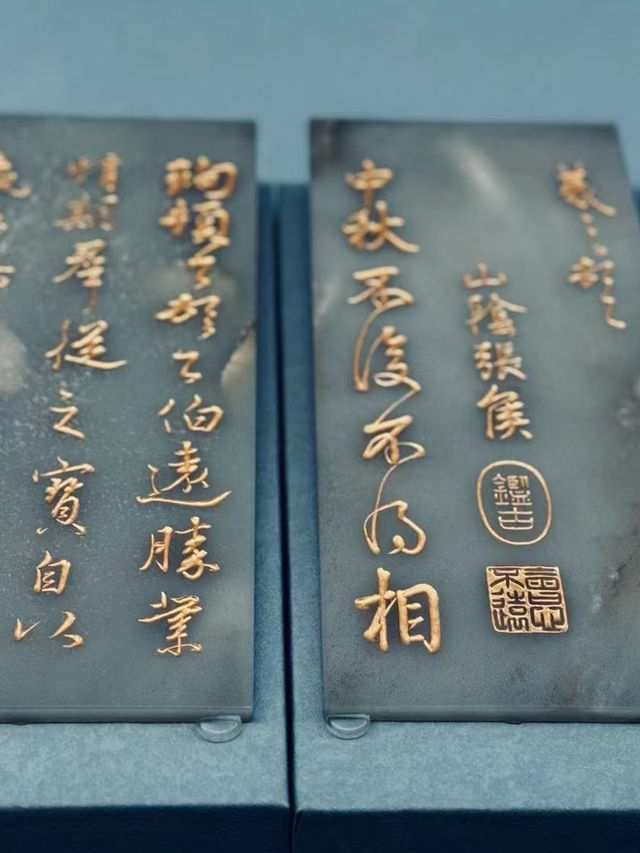 羲之頓首
山陰張侯
鑑古
中秋不復不得相
珣頓首頓首伯遠勝業
情期羣從之寶自以